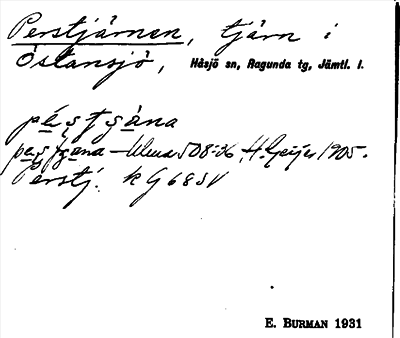 Perstjärnen, tjärn i
Östansjö, Håsjö sn, Ragunda tg, Jämtl. l.
Ulma 508:36, H. Geijer 1905.
Perstj. kG 68 SV
E. BURMAN 1931